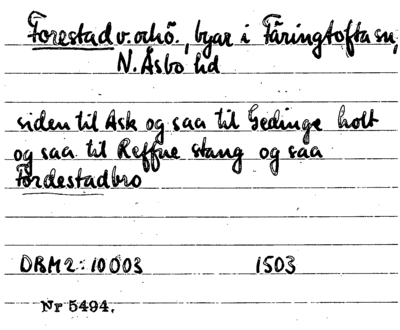 Forestad v. o. hö., byar i Färingtofta sn,
N. Åsbo hd
siden til Ask og saa til Gedinge holt
og saa til Reffue stang og saa
Fordestadbro
DRM 2: 10003 1503
Nr 5494.